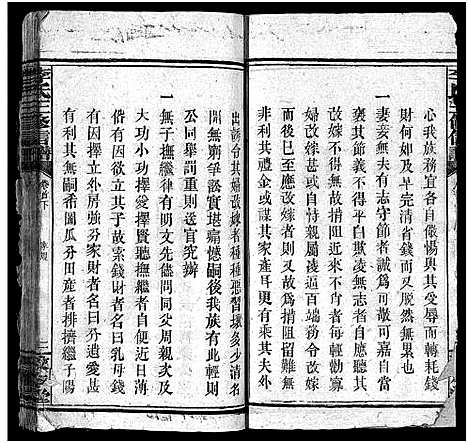 心我族務宜各自儆惕與其受辱而轉耗錢
財何如及早完清省錢而且脫然無累也
一妻妾無夫有志守節者誠爲可敬可嘉自當
褒其節義不得平白欺凌無志者自
嫁改不得無故指阻近來不
婦改嫁不親屬凌逼百端務
爲改嫁者則又故爲措阻留難無
非利其禮金或謀其家產耳更有乘其夫外
出誘令其婦改嫁者種種惡習壞多少清名
開無窮爭訟實堪痛憾嗣後我族有此輕則
公同舉罰重則送官究辦
一無子撫繼律有明文先儘同父周親次及
大功小功擇愛擇賢聽撫繼者自便近日薄
俗有因欲立其子故索錢財者名曰乳母錢
有因擇立外房強分家財者名曰分遺愛甚
有利其無嗣希圖瓜分田產者排擠繼子陽
李氏三修族譜
卷首下